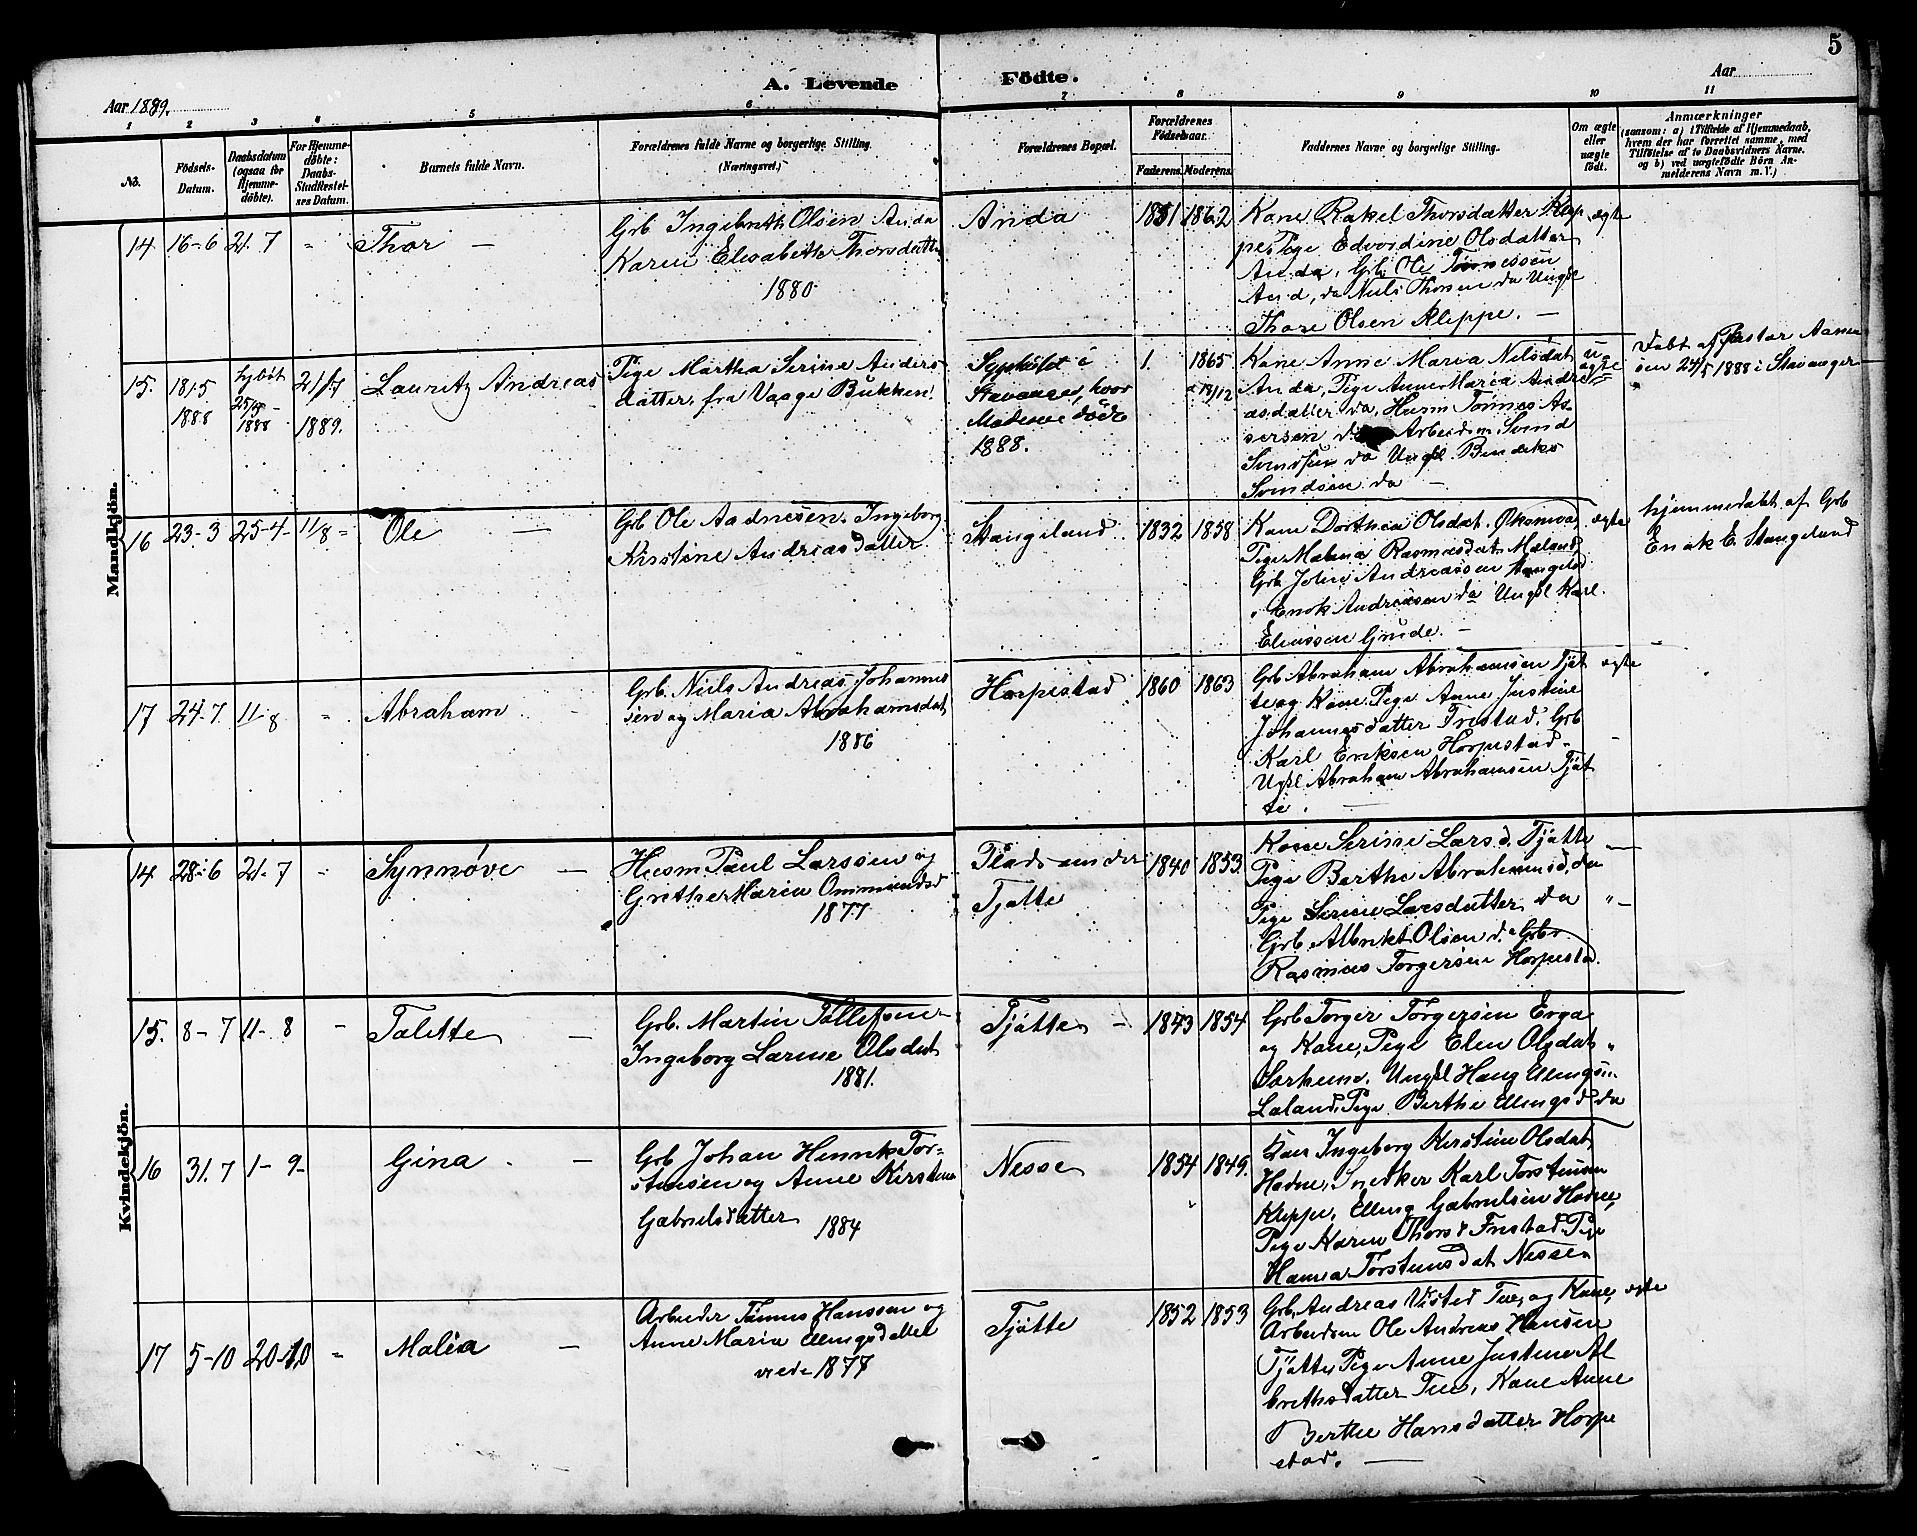 5
A. Levende Födte.
Aar 1889.
Aar
1 2 3 4 5 6 7 8 9 10 11
No.
Födsels-
Datum.
Daabsdatum
(ogsaa for
Hjemme-
döbte).
For Hjemme-
döbte:
Daabs-
Stadfæstel-
ses Datum.
Barnets fulde Navn.
Forældrenes fulde Navne og borgerlige Stilling
(Næringsvei.)
Forældrenes Bopæl.
Forældrenes
Födselsaar.
Faderens. Moderens.
Faddernes Navne og borgerlige Stilling.
Om ægte
eller
uægte
født.
Anmærkninger
(saasom: a) i Tilfælde af Hjemmedaab,
hvem der har forrettet samme, med
Tilföielse af to Daabsvidners Navne.
og b) ved uægtefødte Börn An-
melderens Navn m. V.)
Mandkjön.
14 16-6 21. 7 " Thor -
Grb Ingebreth Olsen Anda
Karen Elisabeth Thorsdatter
1880
Anda 1851 1862
Kone Rakel Thorsdatter Klep
pe, Pige Edvardine Olsdatter
Anda, Grb Ole Tønnessen
And, da Niels Thorsen da Ungkl
Thore Olsen Kleppe. -
ægte
15. 18/5
1888
25/5
1888
21/7
1889.
Lauritz Andreas
Pige Martha Serine Anders
datter, fra Vaage Bukken
Sygehuset i
Stavanger, hvor
Moderen døde
1888.
1. 1865
Kone Anne Maria Nilsdat
Anda, Pige Anne Maria Andre
asdatter da, Husm Tønnes As-
sersen da Arbeidsm. Svend
Svendsen da Ungkl. Bendiks
Svendsen da -
u
ægte
Døbt af Pastor Aanen
sen 25/5 1888 i Stavanger
16 23-3 25-4 11/8 = Ole -
Grb Ole Aadnesen. Ingeborg
Kirstine Andreasdatter
Stangeland 1832 1858
Kone Dorthea Olsdat.
Pige Malena Rasmusdat. Mæland,
Grb John Andreassen Stangeld
" Enok Andreasen da Ungkl Karl
Eliassen Grude. -
ægte
hjemmedøbt af Grb
Enok E. Stangeland
17 24. 7 11-8 " Abraham -
Grb. Niels Andreas Johannes
sen og Maria Abrahamsdat
1886
Horpestad 1860 1863
Grb Abraham Abrahamsen Tjøt
te og Kone, Pige Anne Justine
Johannesdatter Friestad, Grb
Karl Eriksen Horpestad -
Ugkl Abraham Abrahamsen Tjøt
te. -
ægte
Kvindekjön.
14 28-6 21. 7 - Synnøve -
Husm Paul Larsen og
Grethe Maria Ommundsd
1877
Plads under
Tjøtte
1840 1853.
Kone Serine Larsd. Tjøtte
Pige Berthe Abrahamsd. da
Pige Serine Larsdatter da
Grb. Albrikt Olsen da Grb
Rasmus Torgersen Horpestad.
" -
15. 8-7 11-8 - Talette -
Grb. Martin Tollefsen -
Ingeborg Larine Olsdat
1881.
Tjøtte - 1843 1854
Grb Torger Torgersen Erga
og Kone, Pige Elen Olsdat
Sørheim. Ungkl Haug Ellingsen
Laland, Pige Berthe Ellingsd da
"
16 31. 7 1-9- Gina. -
Grb Johan Henrik Tor-
stensen og Anne Kirstine
Gabrielsdatter 1884
Nesse 1854 1849.
Kone Ingeborg Kirstine Olsdat
Hodne, Snedker Karl Torstensen
Kleppe, Elling Gabrielsen Hodne,
Pige Karen Thorsd Friestad, Pige
Hanna Torstensdat Nesse
17 5-10 20-10 " Malia -
Arbeider Tønnes Hanssen og
Anne Maria Ellingsdatter
viede 1877
Tjøtte 1852 1853
Grb. Andreas Visted Tue, og Kone,
Arbeidsm Ole Andreas Hansen
Tjøtte, Pige Anne Justine Al
brethsdatter Tue, Kone Anne
Berthe Hansdatter Horpe
stad. -
ægte